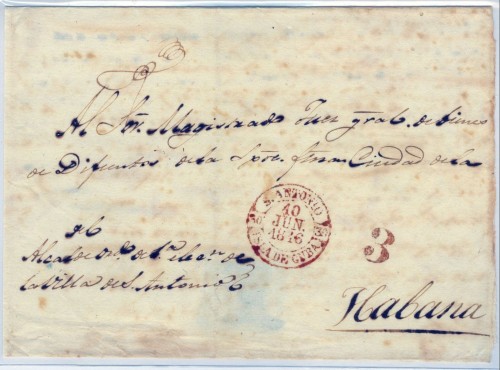 Al Sor. Magistrado Juez gral. de bienes
de Difuntos de la Ciudad de la
Habana
S. ANTONIO
10
JUN.
1846
ISLA DE CUBA
3
el
Alcalde de la
Villa de S. Antonio